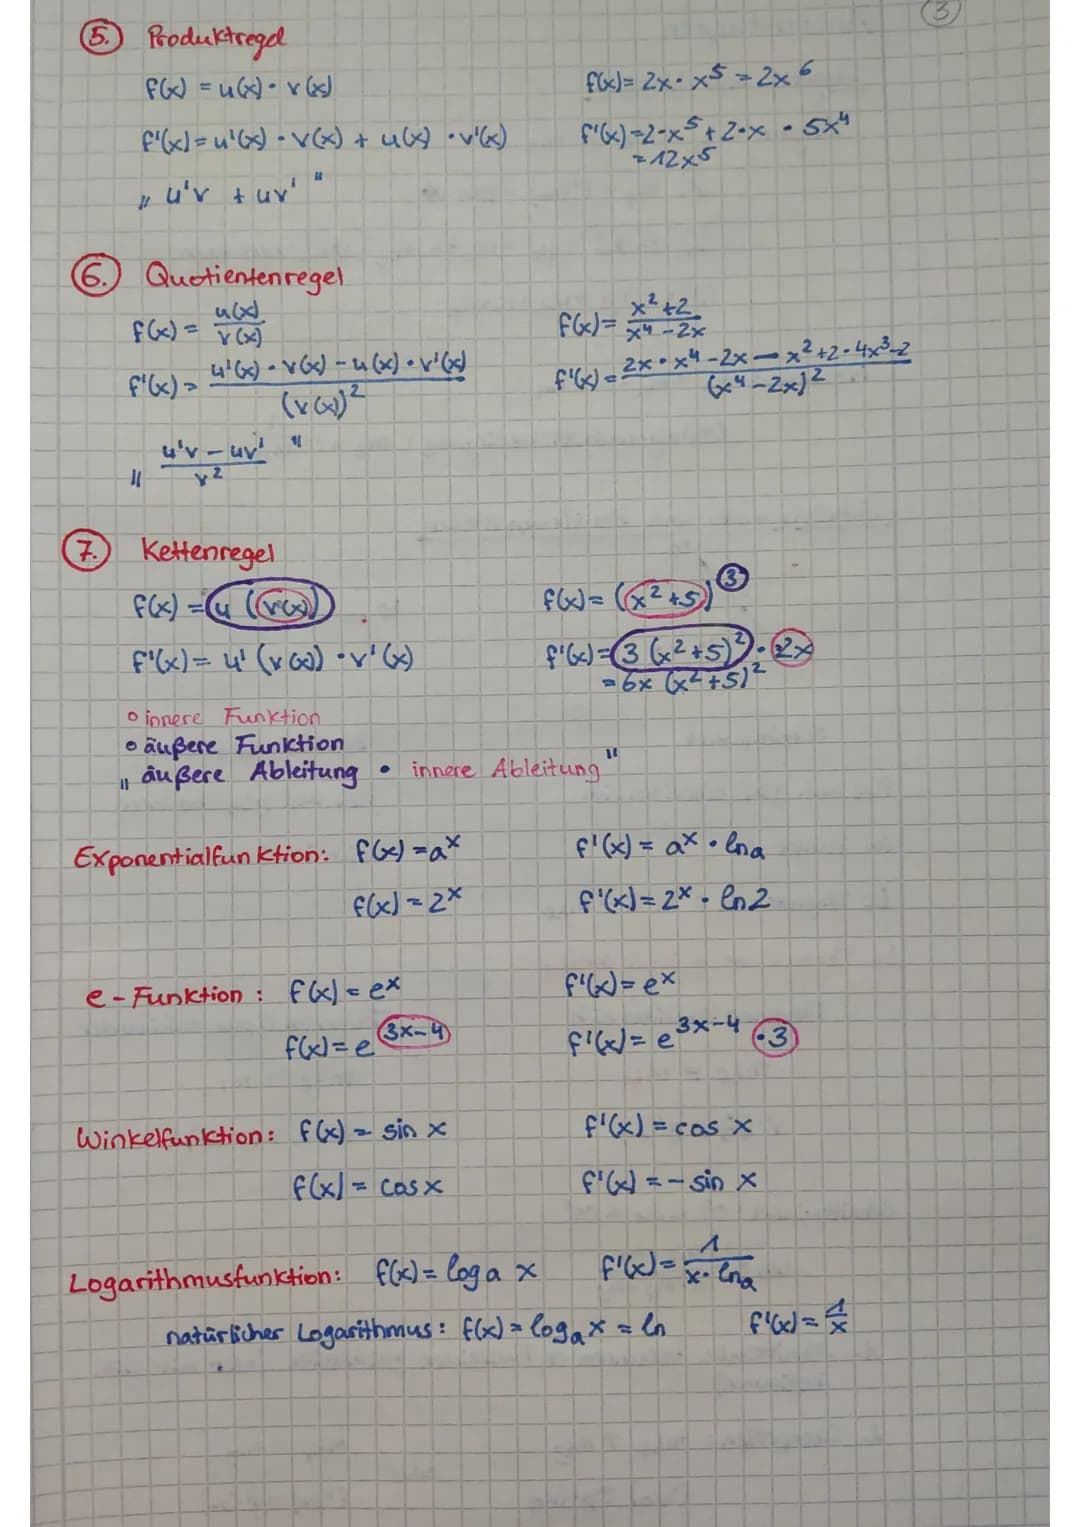 3
5. Produktregel
f(x) = u(x) · v(x)
f(x) = 2x · x⁵ = 2x⁶
f'(x) = u'(x) · v(x) + u(x) · v'(x)
f'(x) = 2·x⁵ + 2·x · 5x⁴
= 12x⁵
„ u'v + uv' "
6. Quotientenregel
f(x) = u(x) / v(x)
f(x) = x²+2 / x⁴-2x
f'(x) = u'(x) · v(x) - u(x) · v'(x) / (v(x))²
f'(x) = 2x · x⁴ - 2x - x²+2 · 4x³-2 / (x⁴-2x)²
„ u'v - uv' / v² "
7. Kettenregel
f(x) = u (v(x))
f(x) = (x²+5)³
f'(x) = u' (v(x)) · v'(x)
f'(x) = 3 (x²+5)² · 2x
= 6x (x²+5)²
o innere Funktion
o äußere Funktion
„ äußere Ableitung · innere Ableitung "
Exponentialfunktion: f(x) = aˣ f'(x) = aˣ · ln a
f(x) = 2ˣ f'(x) = 2ˣ · ln 2
e-Funktion: f(x) = eˣ f'(x) = eˣ
f(x) = e³ˣ⁻⁴ f'(x) = e³ˣ⁻⁴ · 3
Winkelfunktion: f(x) = sin x f'(x) = cos x
f(x) = cos x f'(x) = - sin x
Logarithmusfunktion: f(x) = log a x f'(x) = 1 / x · ln a
natürlicher Logarithmus: f(x) = logₐ x = ln f'(x) = 1/x